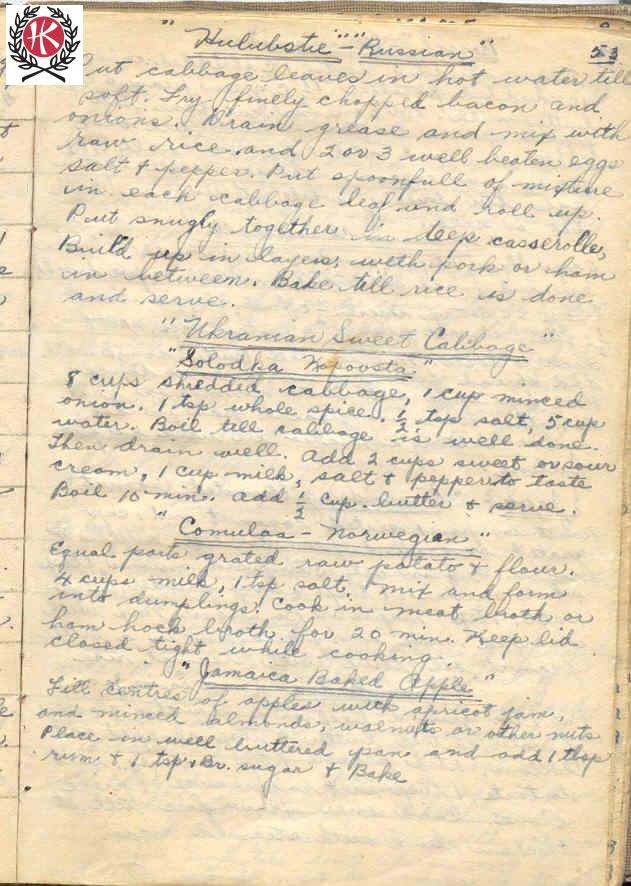 HK
"Hulubstie" - "Russian" 53
Put cabbage leaves in hot water till
soft. Fry finely chopped bacon and
onions. Drain grease and mix with
raw rice and 2 or 3 well beaten eggs
salt & pepper. Put spoonfull of mixture
in each cabbage leaf and roll up.
Put snugly together in deep casserolle,
Build up in layers, with pork or ham
in between. Bake till rice is done
and serve.
"Ukranian Sweet Cabbage"
"Solodka Kapoosta."
8 cups shredded cabbage, 1 cup minced
onion. 1 tsp whole spice. 1/2 tsp salt, 5 cup
water. Boil till cabbage is well done.
Then drain well. Add 2 cups sweet or sour
cream, 1 cup milk, salt & pepper to taste
Boil 10 min. Add 1/2 cup butter & serve.
"Comulas - Norwegian."
Equal parts grated raw potato & flour.
4 cups milk, 1 tsp salt. Mix and form
into dumplings. Cook in meat broth or
ham hock broth for 20 min. Keep lid
closed tight while cooking.
"Jamaica Baked Apple"
Fill centres of apples with apricot jam,
and minced almonds, walnuts or other nuts
Place in well buttered pan and add 1 tbsp
rum & 1 tsp Br. sugar & Bake